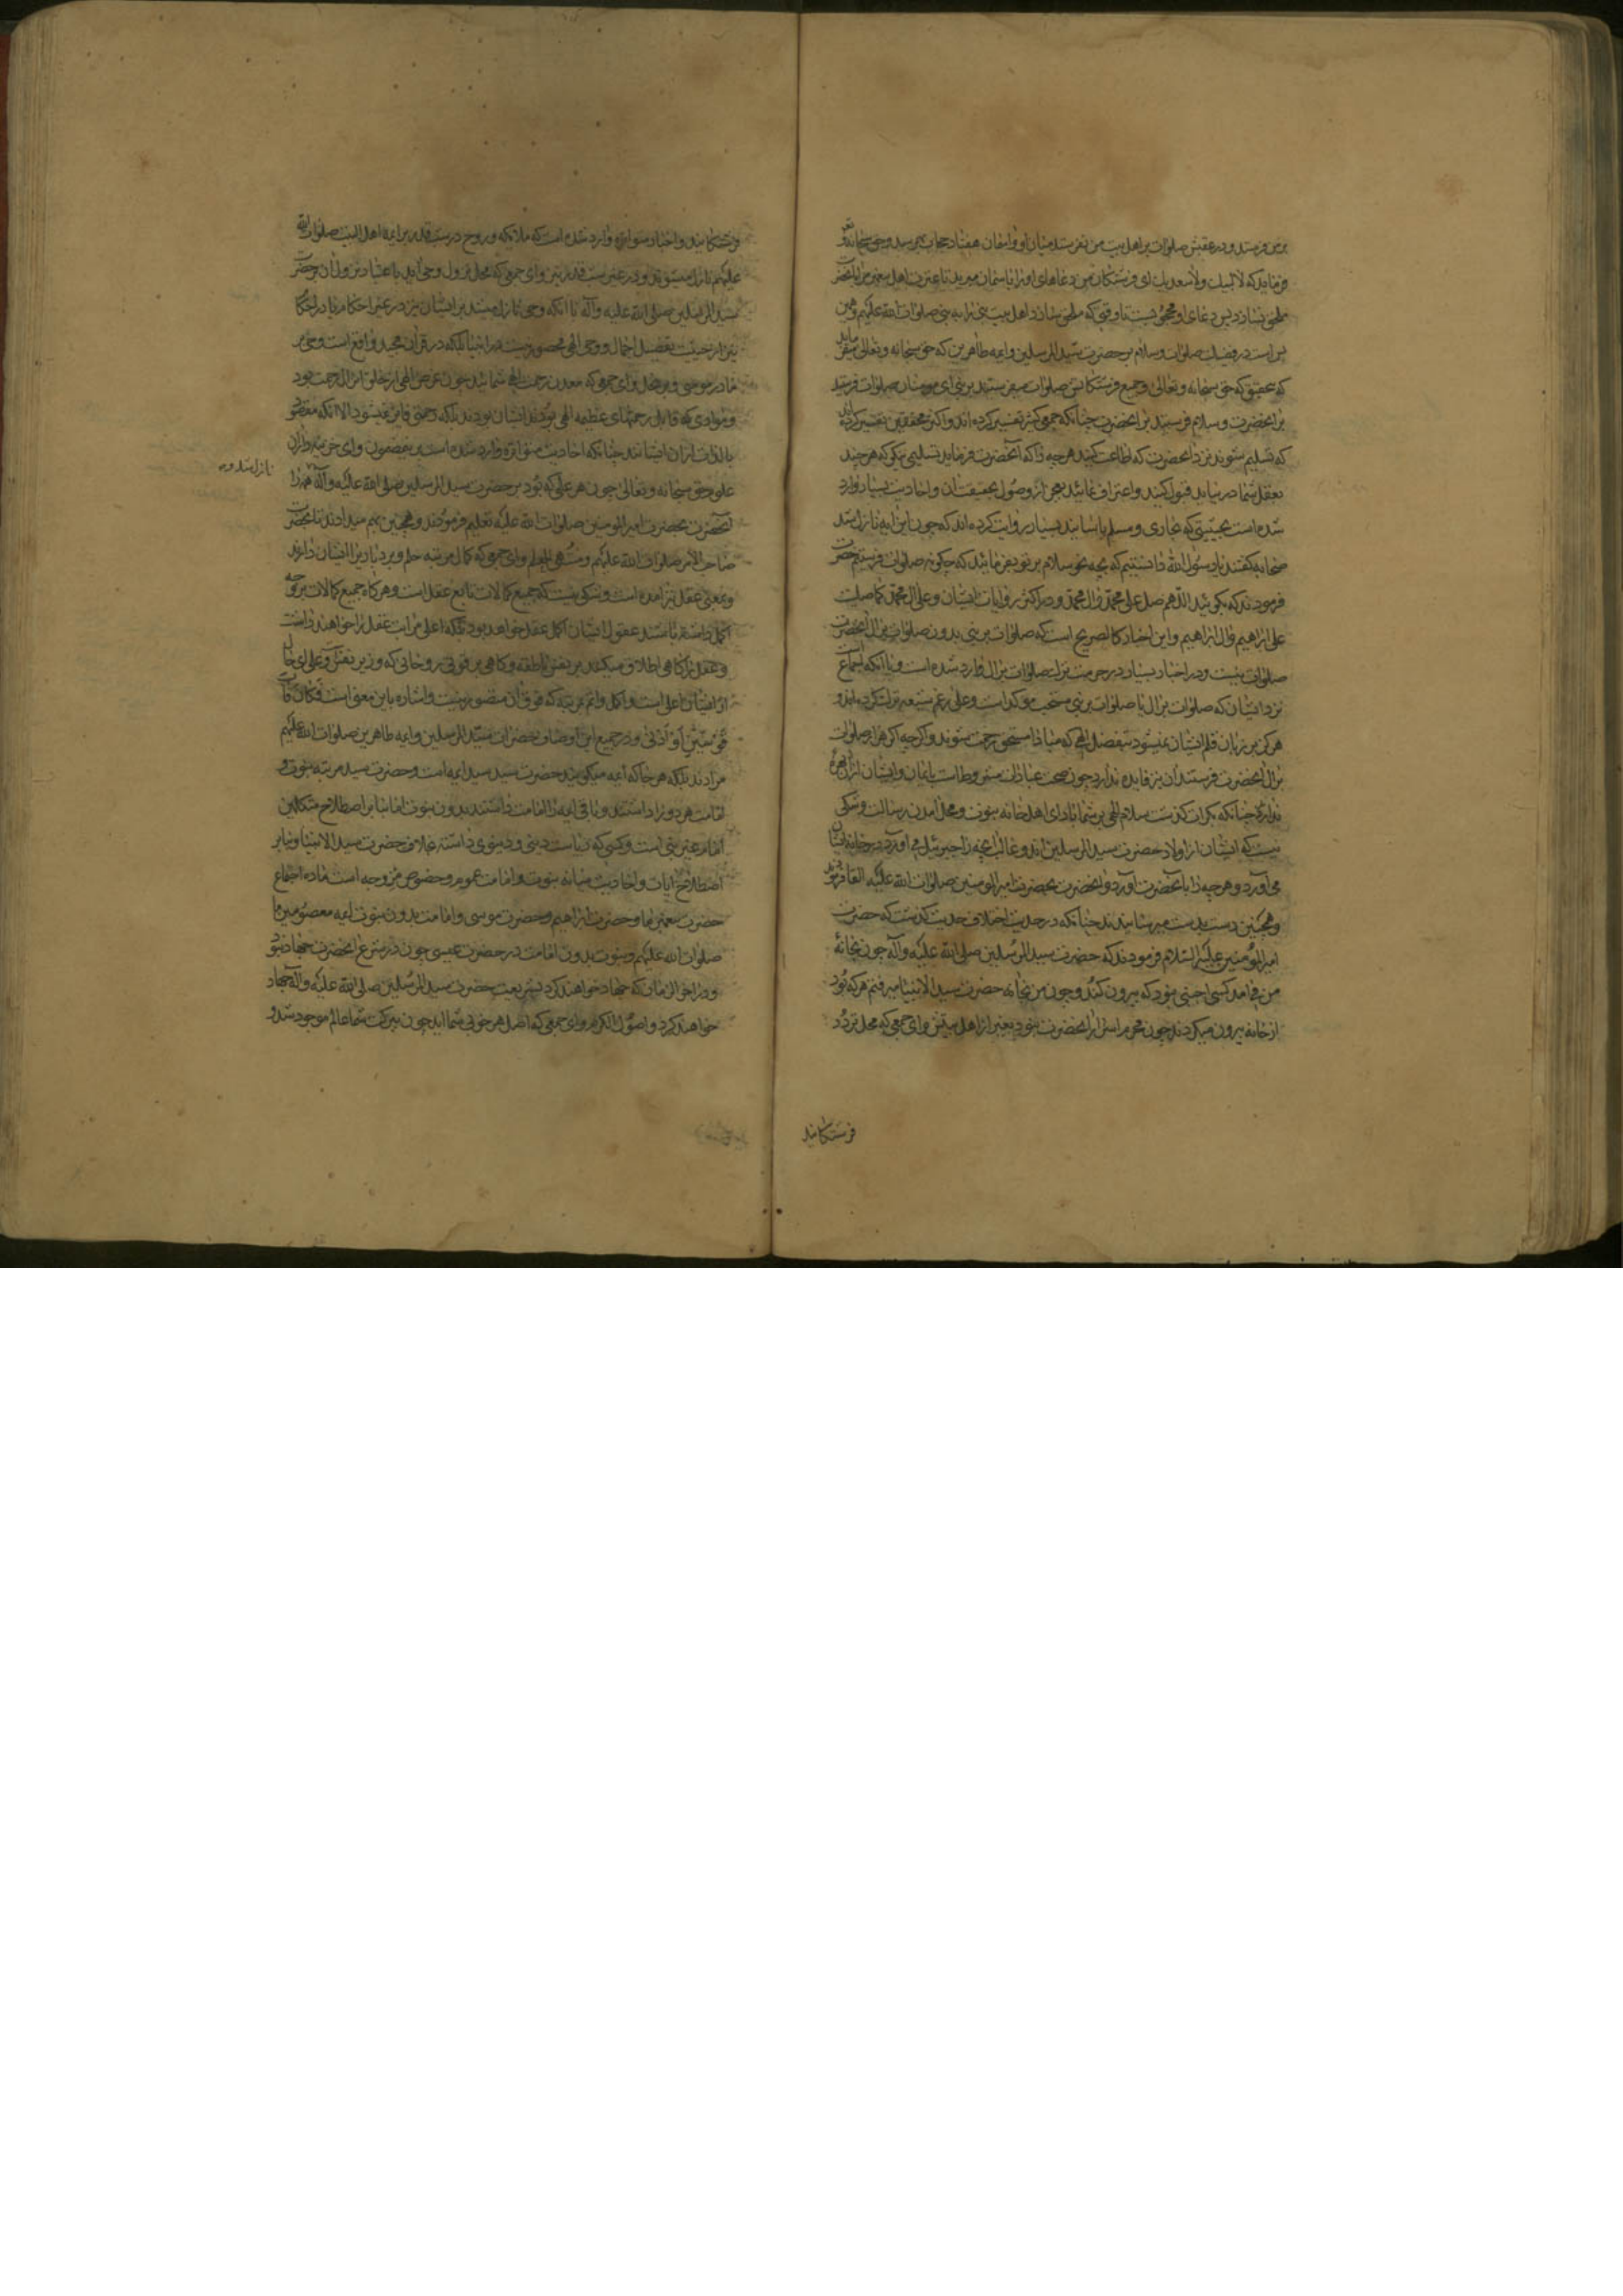 برمن فرستد و در عقبش صلوات بر اهل بیت من نفرستد میان او و آسمان هفتاد حجاب بهم رسد و حق سبحانه و تعالی
فرماید که لا لبیک ولا سعدیک ای فرشتگان من دعاهای او را بآسمان مبرید تا عترت اهل پیغمبر مرا بآنحضرت
ملحق نسازد پس دعای او محجوبست تا وقتی که ملحق سازد اهل بیت نبی را به نبی صلوات الله علیهم و همین
بس است در فضیلت صلوات و سلام بر حضرت سید المرسلین و ایمه طاهرین که حق سبحانه و تعالی میفرماید
که بتحقیق که حق سبحانه و تعالی و جمیع فرشتگانش صلوات میفرستند بر نبی ای مومنان صلوات فرستید
بر آنحضرت و سلام فرستید بر آنحضرت چنانکه جمعی کثیر تفسیر کرده اند و اکثر محققین تفسیر کرده اند
که تسلیم شوید نزد آنحضرت که اطاعت کنید هر چه را که آنحضرت فرماید تسلیمی نیکو که هر چند
بعقل شما در نیاید قبول کنید و اعتراف نمائید بعجز از وصول بحقیقت آن و احادیث بسیار وارد
شده است بحیثیتی که بخاری و مسلم باسانید بسیار روایت کرده اند که چون این آیه نازل شد
صحابه گفتند یا رسول الله دانستیم که بچه نحو سلام بر تو بفرمائید که چگونه صلوات فرستیم حضرت
فرمودند که بگوئید اللهم صل علی محمد و ال محمد و در اکثر روایات ایشان و علی ال محمد کما صلیت
علی ابراهیم و ال ابراهیم و این اخبار کالصریح است که صلوات بر نبی بدون صلوات بر ال آنحضرت
صلوات نیست و در اخبار بسیار در حرمت ترک صلوات بر ال وارد شده است و با آنکه اجماع
نزد ایشان که صلوات بر ال با صلوات بر نبی مستحب موکد است و علی رغم شیعه ترک کرده اند و
هرگز بر زبان قلم ایشان نمیشود بفضل الهی که مبادا مستحق رحمت شوند و اگر چه اگر هزار صلوات
بر ال آنحضرت فرستند آن نیز فایده ندارد چون صحت عبادات مشروط است بایمان و ایشان از آن بهره
ندارند چنانکه مکرر گذشت سلام الهی بر شما باد ای اهل خانه نبوت و محل آمدن رسالت و شکی
نیست که ایشان از اولاد حضرت سید المرسلین اند و غالبا آنچه را جبرئیل می آورد در خانه ایشان
می آورد و هر چه را بآنحضرت آورد آنحضرت بحضرت امیر المومنین صلوات الله علیه القا فرمودند
و همچنین دست بدست میرسانیدند چنانکه در حدیث اختلاف حدیث گذشت که حضرت
امیر المومنین علیه السلام فرمودند که حضرت سید المرسلین صلی الله علیه و آله چون بخانه
من می آمد کسی اجنبی نبود که بیرون کند و چون من بخانه حضرت سید الانبیا میرفتم هر که بود
از خانه بیرون میکردند چون محرم اسرار آنحضرت نبود بغیر از اهل بیتش و ای جمعی که محل تردد
فرشتگانید
فرشتگانید و اخبار متواتره وارد شده است که ملائکه و روح در شب قدر بر ایمه اهل البیت صلوات الله
علیهم نازل میشوند و در غیر شب قدر نیز و ای جمعی که محل نزول وحی اید باعتبار نزول آن بر حضرت
سید المرسلین صلی الله علیه و آله تا آنکه وحی نازل میشد بر ایشان نیز در غیر احکام یا در احکام
نیز از حیثیت تفصیل اجمال و وحی الهی مخصور نیست در انبیا بلکه در قرآن مجید واقع است وحی بر
مادر موسی و بر نحل و ای جمعی که معدن رحمت الهی شمائید چون غرض الهی از خلق انزال رحمت بود
و موادی که قابل رحمتهای عظیمه الهی بودند ایشان بودند بلکه رحمتی فایز نمیشود الا آنکه مقصود
بالذات از آن ایشانند چنانکه احادیث متواتره وارد شده است بدین مضمون و ای خزینه داران
علوم حق سبحانه و تعالی چون هر علمی که بود بر حضرت سید المرسلین صلی الله علیه و آله همه را
نازل شد و
آنحضرت بحضرت امیر المومنین صلوات الله علیه تعلیم فرمودند و همچنین بهم میدادند تا بحضرت
صاحب الامر صلوات الله علیهم و منتهی الحلم و ای جمعی که کمال مرتبه حلم و بردباری را ایشان دارند
و بمعنی عقل نیز آمده است و شکی نیست که جمیع کمالات تابع عقل است و هر گاه جمیع کمالات بر وجه
اکمل داشته باشند عقول ایشان اکمل عقول خواهد بود بلکه اعلی مراتب عقل را خواهند داشت
و عقل را گاهی اطلاق میکنند بر نفس ناطقه و گاهی بر قوتی روحانی که وزیر نفس و علی ای حال
از ایشان اعلی است و اکمل و اتم بمرتبه که فوق آن متصور نیست و اشاره باین معنی است فکان قاب
قوسین أو أدنی و در جمیع این اوصاف حضرات سید المرسلین و ایمه طاهرین صلوات الله علیهم
مرادند بلکه هر جا که ایمه میگویند حضرت سید سید ایمه است و حضرت سید مرتبه نبوت و
امامت هر دو را داشتند و باقی ایمه را امامت داشتند بدون نبوت اما بنا بر اصطلاح متکلمین
امام غیر نبی است و کسی که ریاست دینی و دنیوی داشته بخلاف حضرت سید الانبیا و بنا بر
اصطلاح آیات و احادیث میانه نبوت و امامت عموم و خصوص من وجه است ماده اجتماع
حضرت پیغمبر ما و حضرت ابراهیم و حضرت موسی و امامت بدون نبوت ایمه معصومین ما
صلوات الله علیهم و نبوت بدون امامت در حضرت عیسی چون در شرع آنحضرت جهاد نبود
و در آخر الزمان که جهاد خواهند کرد بشریعت حضرت سید المرسلین صلی الله علیه و آله جهاد
خواهند کرد و اصول الکرم و ای جمعی که اصل هر خوبی شما اید چون ببرکت شما عالم موجود شد و